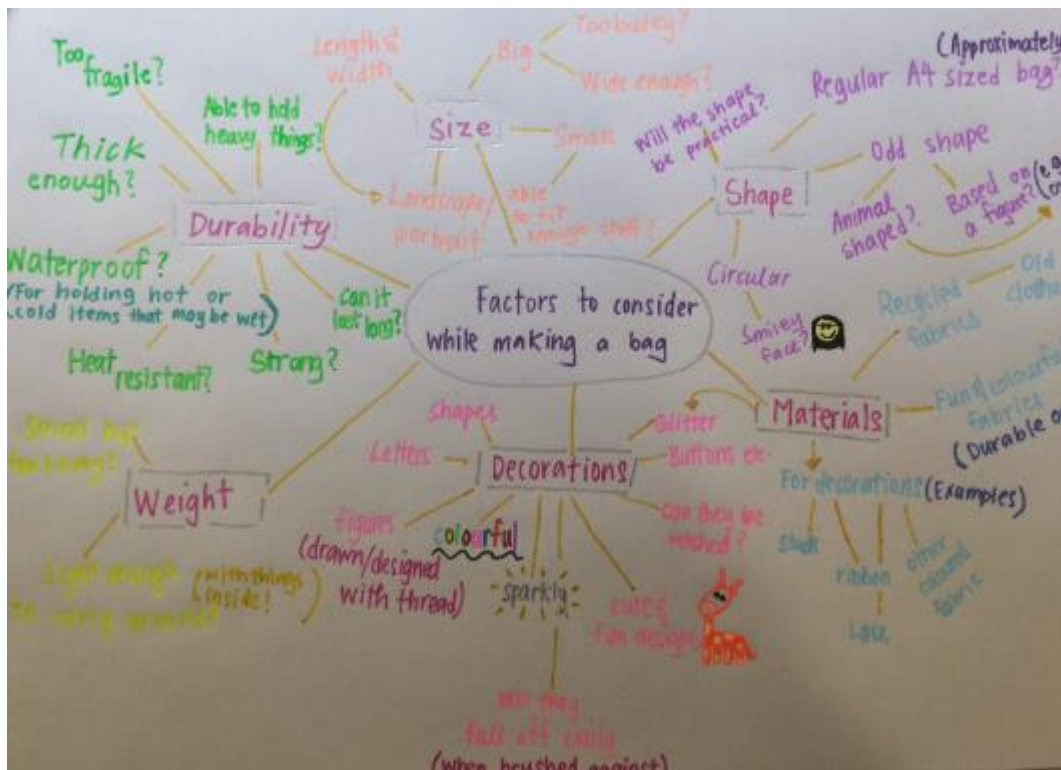 Factors to consider
while making a bag
Durability
Too
fragile?
Able to hold
heavy things?
Thick
enough?
Waterproof?
(For holding hot or
cold items that may be wet)
Heat
resistant?
Strong?
can it
last long?
Size
Length &
width
Landscape/
portrait
Big
Too bulky?
Wide enough?
Small
able
to fit
enough stuff?
Shape
Will the shape
be practical?
(Approximately
Regular A4 sized bag?
Odd shape
Animal
shaped?
Based on
a figure?
(e.g
Circular
Smiley
face?
Materials
Recycled
fabrics
Old
Fun & colourful
fabrics
(Durable
For decorations (Examples)
ribbon
Lace
other
coloured
fabric
Decorations
shapes
Letters
figures
(drawn/designed
with thread)
colourful
sparkly
Glitter
Buttons etc.
can they be
washed?
cute &
fun designs
will they
fall off easily
(when brushed against)
Weight
Small but
too heavy?
Light enough
to carry around?
(with things
inside!)